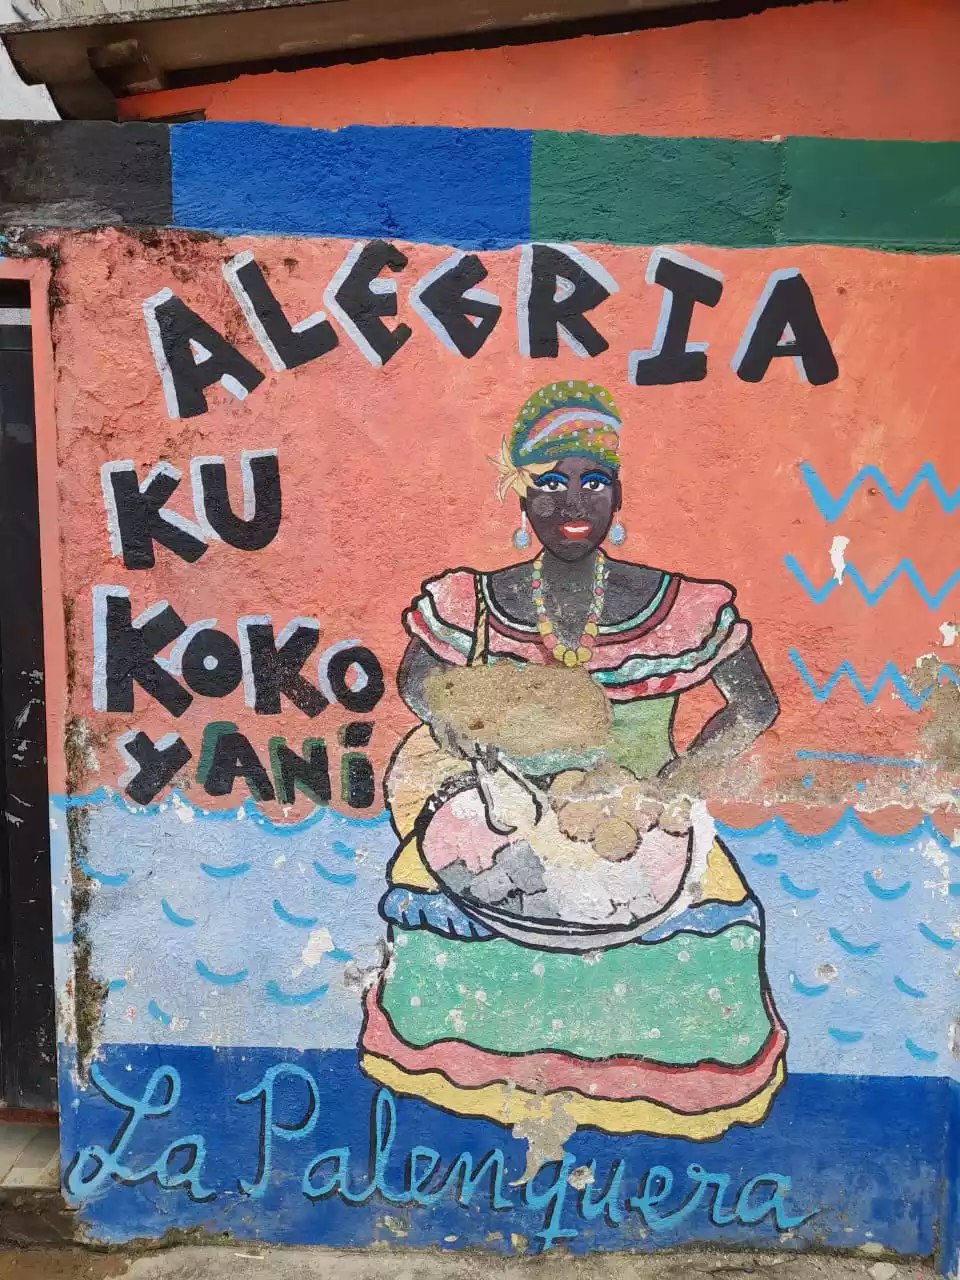 ALEGRIA
KU
KOKO
YANÍ
La Palenquera